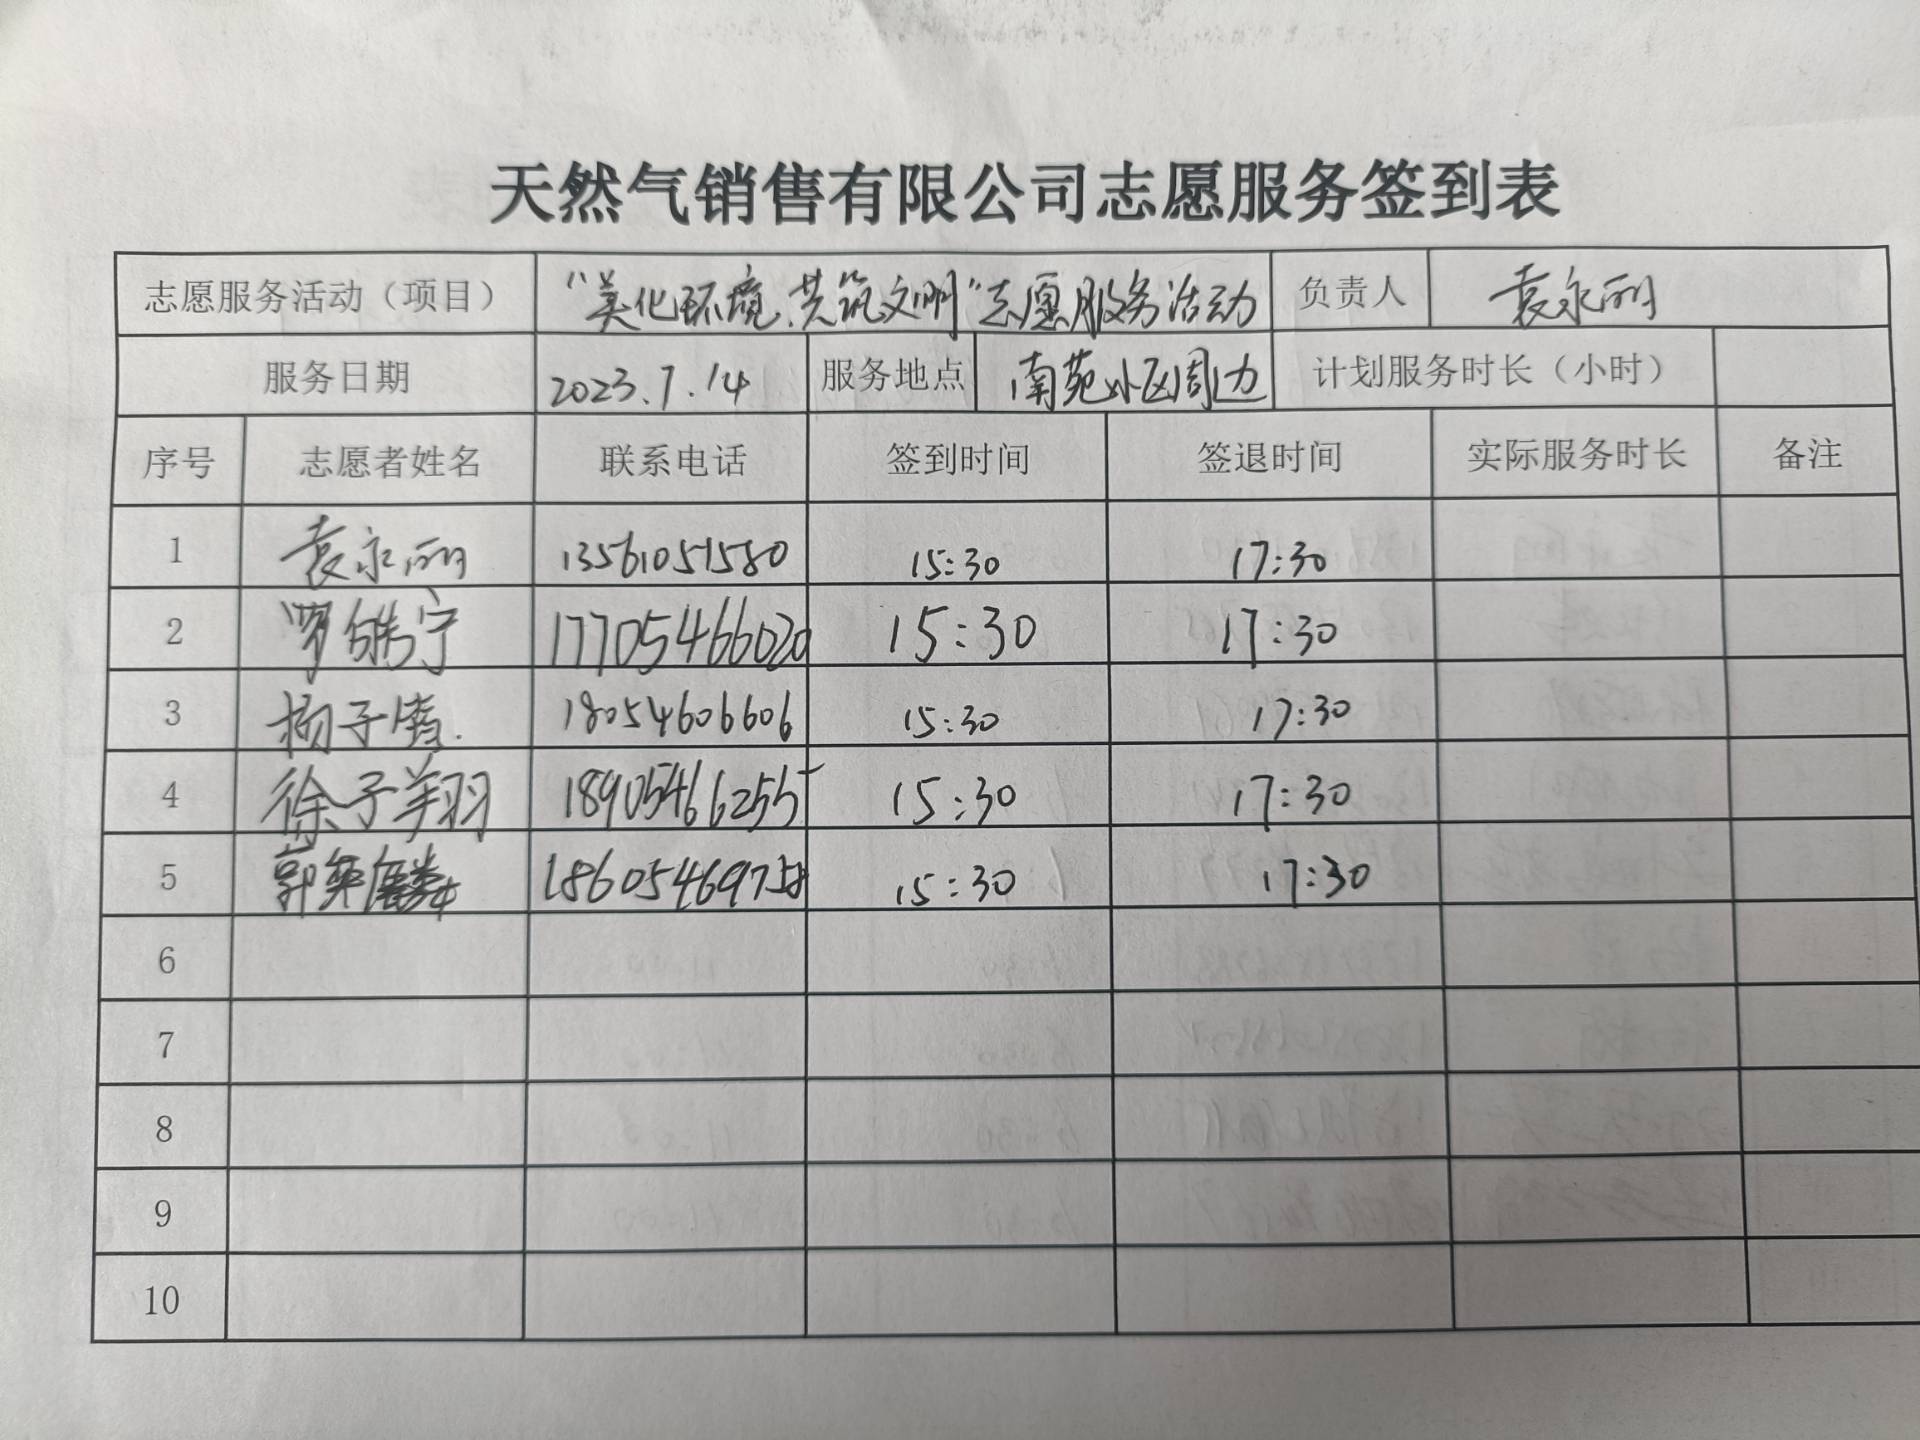 天然气销售有限公司志愿服务签到表
志愿服务活动（项目） “美化环境、共筑文明”志愿服务活动 负责人 袁永丽
服务日期 2023.7.14 服务地点 南苑小区周边 计划服务时长（小时）
序号 志愿者姓名 联系电话 签到时间 签退时间 实际服务时长 备注
1 袁永丽 13561051580 15:30 17:30
2 宁 17705466020 15:30 17:30
3 杨子倩 18054606606 15:30 17:30
4 徐子翔 18905466255 15:30 17:30
5 郭 15:30 17:30
6
7
8
9
10